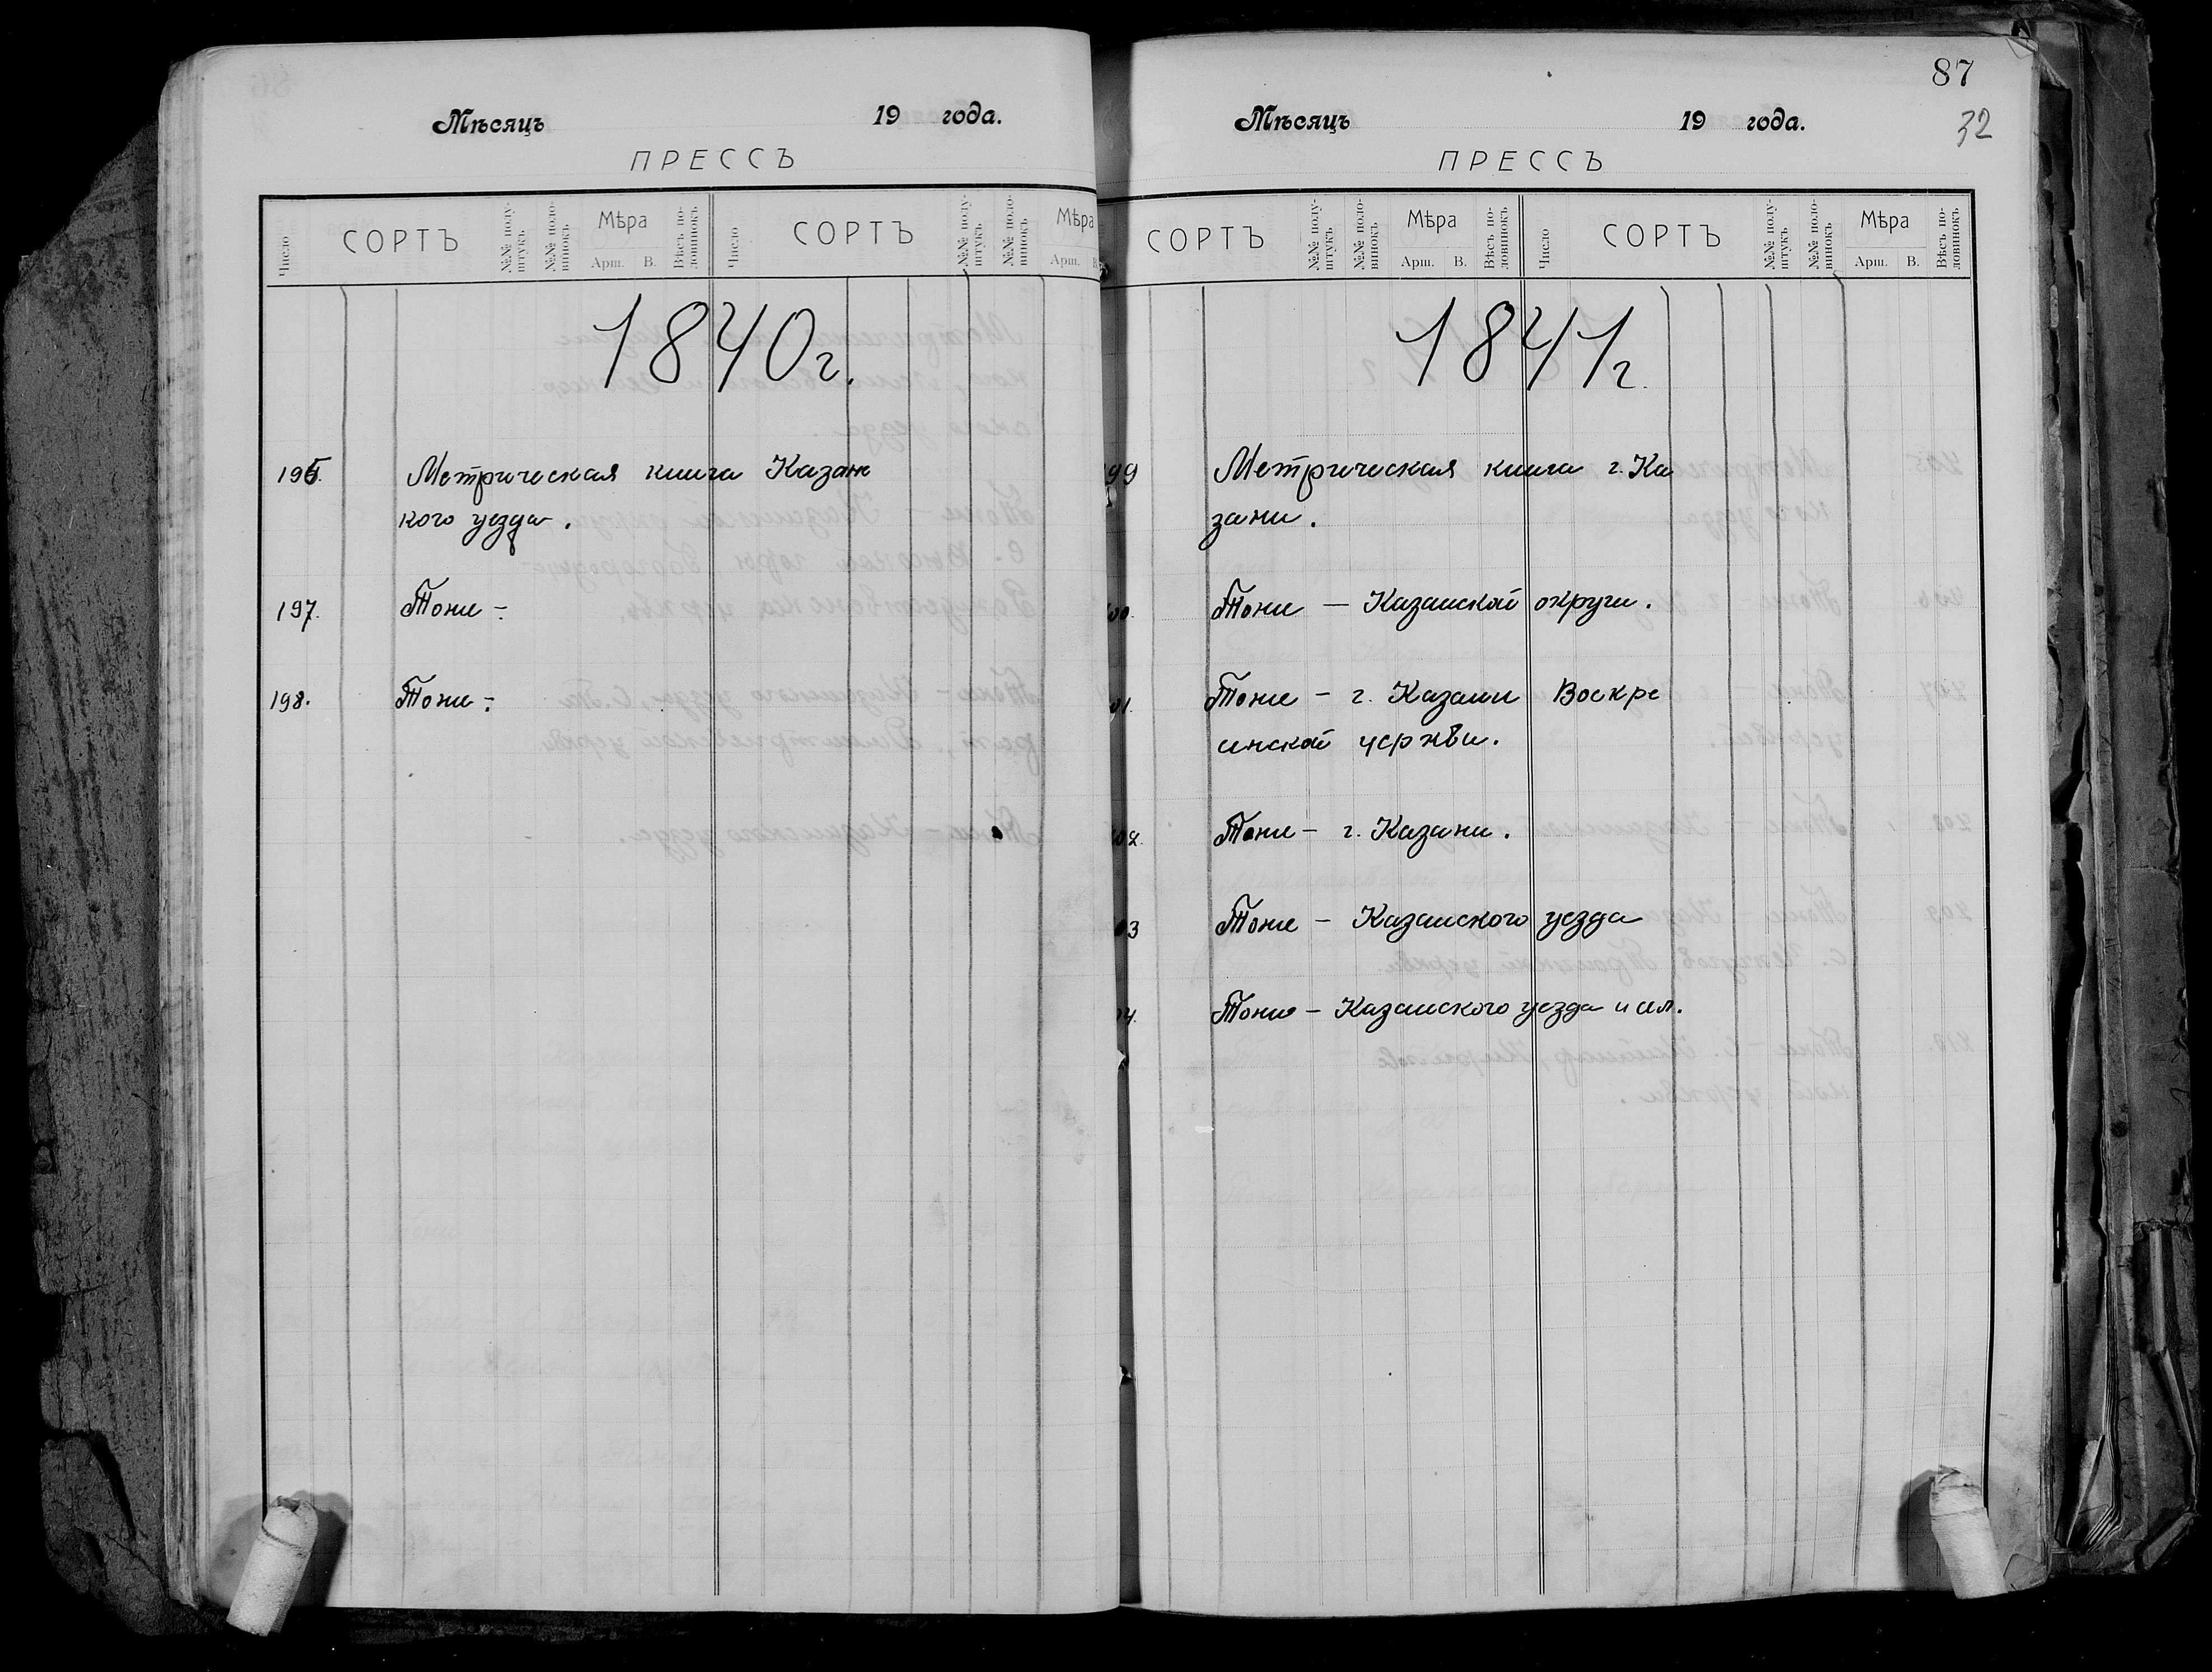 Мѣсяцъ 19 года.
ПРЕССЪ
Число СОРТЪ №№ полу-штукъ №№ поло-винокъ Мѣра Арш. В. Вѣсъ по-ловинокъ Число СОРТЪ №№ полу-штукъ №№ поло-винокъ Мѣра
1840г.
196. Метрическая книга Казан
кого уезда.
197. Тоже -
198. Тоже -
87
32
Мѣсяцъ 19 года.
ПРЕССЪ
СОРТЪ №№ полу-штукъ №№ поло-винокъ Мѣра Арш. В. Вѣсъ по-ловинокъ Число СОРТЪ №№ полу-штукъ №№ поло-винокъ Мѣра Арш. В. Вѣсъ по-ловинокъ
1841г.
99 Метрическая книга г. Ка
зани.
00. Тоже — Казанской округи.
01. Тоже - г. Казани Воскре
сенской церкви.
02. Тоже - г. Казани.
03 Тоже - Казанского уезда
04. Тоже - Казанского уезда